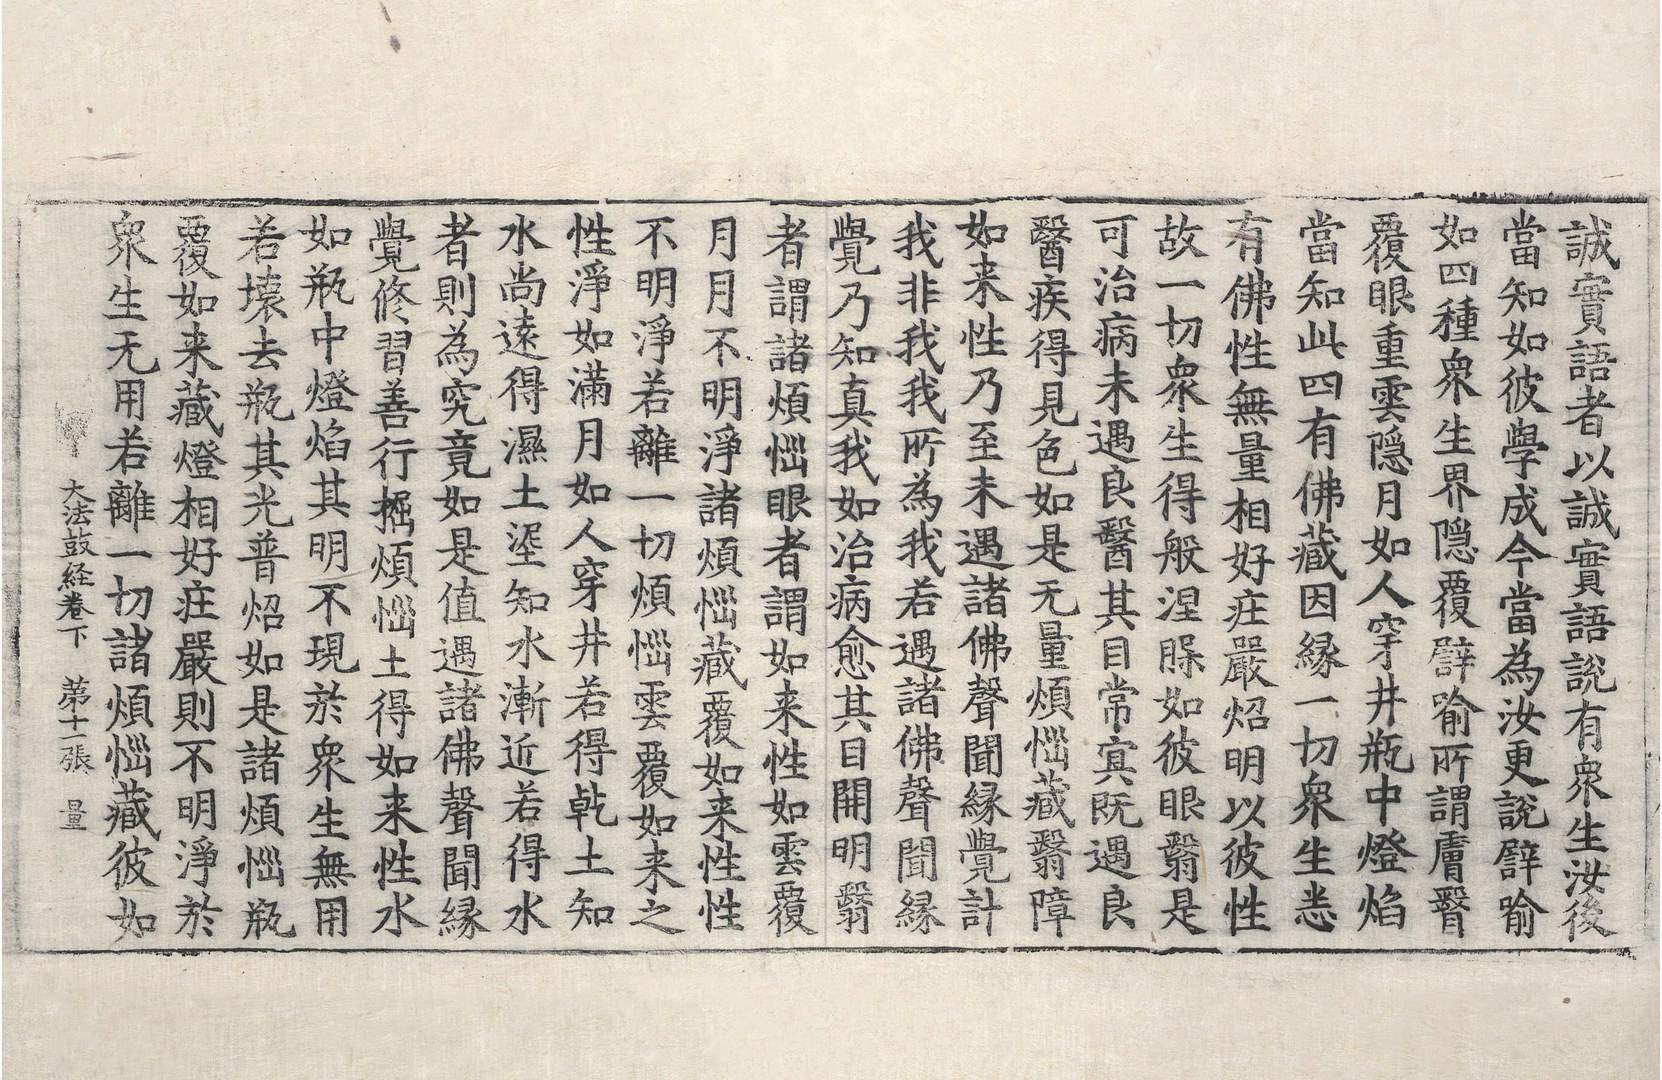 誠實語者以誠實語說有衆生汝後
當知如彼學成今當為汝更說譬喻
如四種衆生界隱覆譬喻所謂膚瞖
覆眼重雲隱月如人穿井瓶中燈焰
當知此四有佛藏因緣一切衆生悉
有佛性無量相好莊嚴炤明以彼性
故一切衆生得般涅槃如彼眼翳是
可治病未遇良醫其目常冥既遇良
醫疾得見色如是无量煩惱藏翳障
如来性乃至未遇諸佛聲聞緣覺計
我非我我所為我若遇諸佛聲聞緣
覺乃知真我如治病愈其目開明翳
者謂諸煩惱眼者謂如来性如雲覆
月月不明淨諸煩惱藏覆如来性性
不明淨若離一切煩惱雲覆如来之
性淨如滿月如人穿井若得乾土知
水尚遠得濕土埿知水漸近若得水
者則為究竟如是值遇諸佛聲聞緣
覺修習善行掘煩惱土得如来性水
如瓶中燈焰其明不現於衆生無用
若壞去瓶其光普炤如是諸煩惱瓶
覆如来藏燈相好莊嚴則不明淨於
衆生无用若離一切諸煩惱藏彼如
大法鼓経卷下 第十一張 量